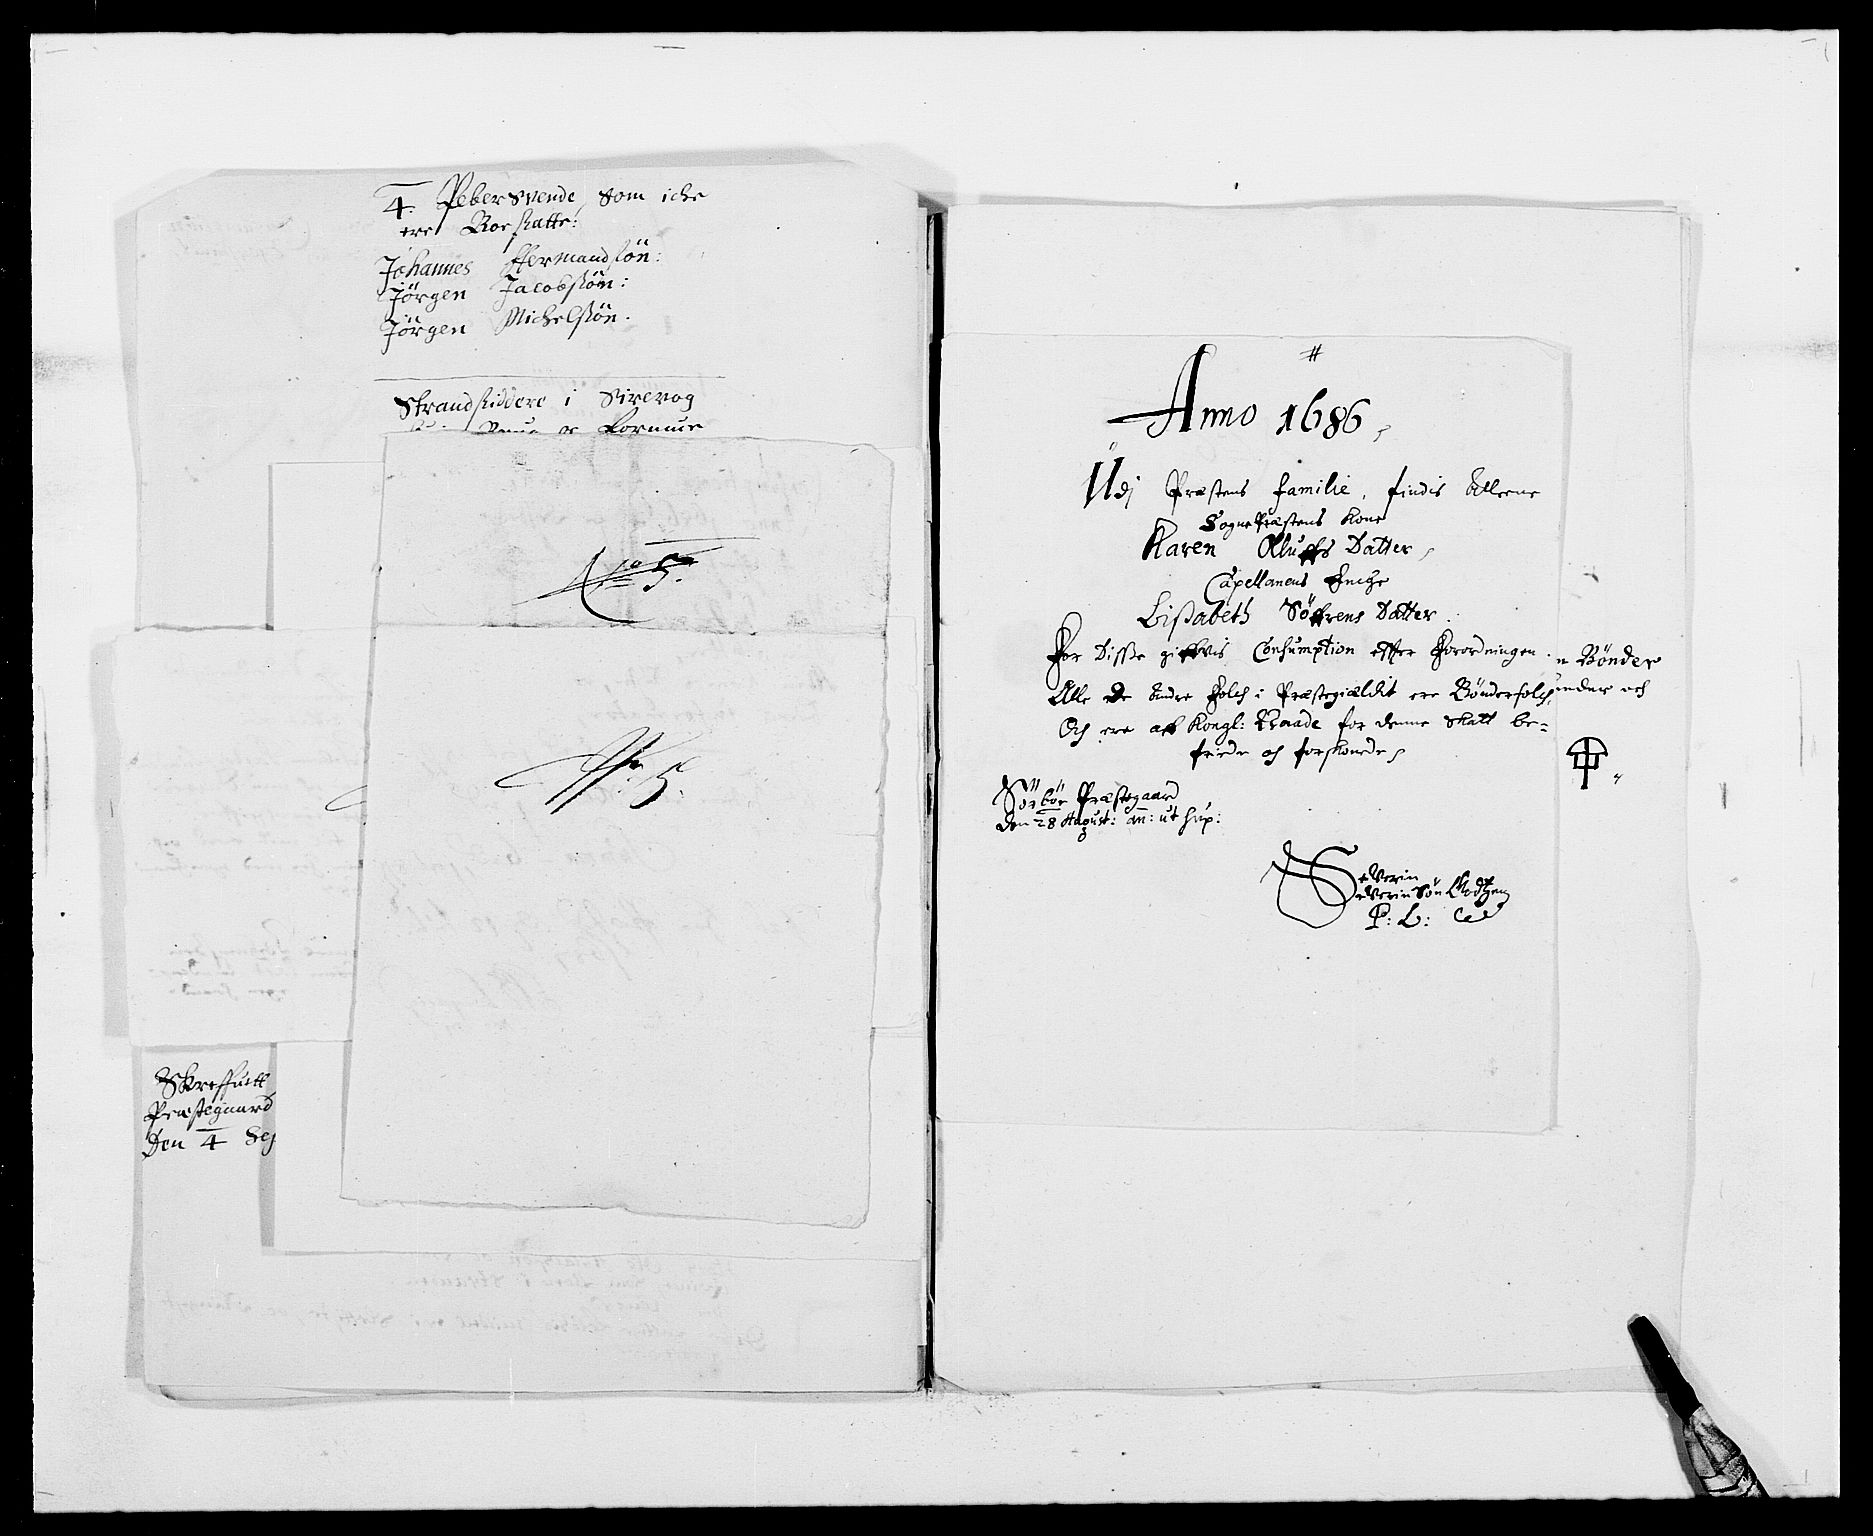 4. Peber svende, som iche
ere Boesatte:
Johannes Hermandsön:
Jörgen Jacobsön:
Jörgen Michelsön.
Strandsiddere i Sirevog
No 5.
5.
Skreffuett
Præstegaard
Den 4 Sep
#
Anno 1686,
Udj Præstens familie, findis Alleene
SognePræstens Kone
Karen Datter,
Capellanens Enche
Lisabeth Söffrens Datter.
For Disse giffvis Consumption efter Forordningen.
Alle De Andre Folch i Præstegieldit ere Bönderfolch,
Och ere aff Kongl: Naade for denne Skatt be-
friede och forskonede,
n Bönder
och
Sörböe Præstegaard
Den 28 August: an: ut sup:
Severin
SeverinSön
P: L: